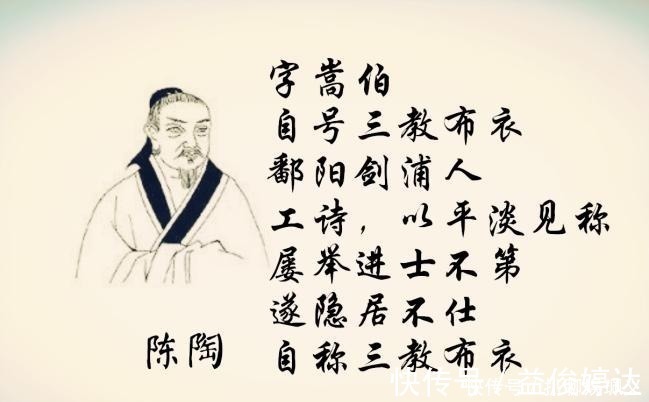 字嵩伯
自号三教布衣
鄱阳剑浦人
工诗，以平淡见称
屡举进士不第
遂隐居不仕
自称三教布衣
陈陶
快传号/益俊婷达